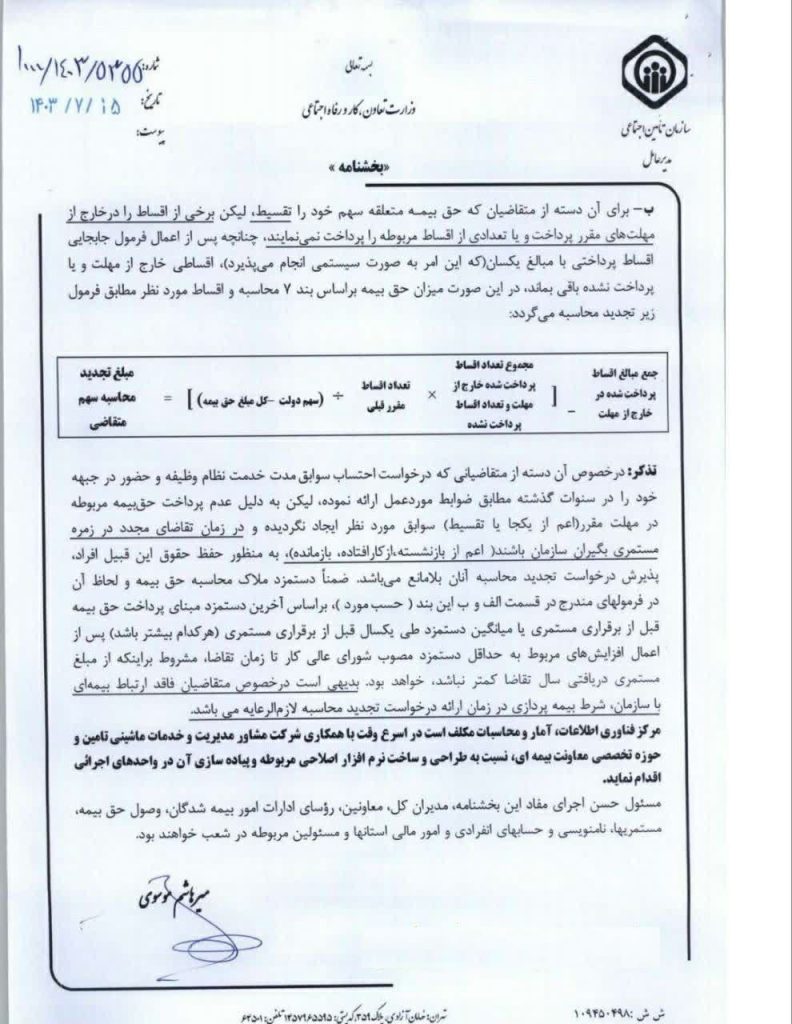 بسمه تعالی
وزارت تعاون، کار و رفاه اجتماعی
سازمان تأمین اجتماعی
مدیرعامل
شماره: ۱۰۰۰/۱۴۰۳/۵۳۵۵
تاریخ: ۱۴۰۳/۷/۱۵
پیوست:
«بخشنامه »
ب- برای آن دسته از متقاضیان که حق بیمه متعلقه سهم خود را تقسیط، لیکن برخی از اقساط را درخارج از
مهلت‌های مقرر پرداخت و یا تعدادی از اقساط مربوطه را پرداخت نمی‌نمایند، چنانچه پس از اعمال فرمول جابجایی
اقساط پرداختی با مبالغ یکسان(که این امر به صورت سیستمی انجام می‌پذیرد)، اقساطی خارج از مهلت و یا
پرداخت نشده باقی بماند، در این صورت میزان حق بیمه براساس بند ۷ محاسبه و اقساط مورد نظر مطابق فرمول
زیر تجدید محاسبه می‌گردد:
جمع مبالغ اقساط
پرداخت شده در
خارج از مهلت
_
[
مجموع تعداد اقساط
پرداخت شده خارج از
مهلت و تعداد اقساط
پرداخت نشده
×
تعداد اقساط
مقرر قبلی
÷
(سهم دولت – کل مبلغ حق بیمه)
]
=
مبلغ تجدید
محاسبه سهم
متقاضی
تذکر: درخصوص آن دسته از متقاضیانی که درخواست احتساب سوابق مدت خدمت نظام وظیفه و حضور در جبهه
خود را در سنوات گذشته مطابق ضوابط موردعمل ارائه نموده، لیکن به دلیل عدم پرداخت حق‌بیمه مربوطه
در مهلت مقرر(اعم از یکجا یا تقسیط) سوابق مورد نظر ایجاد نگردیده و در زمان تقاضای مجدد در زمره
مستمری بگیران سازمان باشند( اعم از بازنشسته،ازکارافتاده، بازمانده)، به منظور حفظ حقوق این قبیل افراد،
پذیرش درخواست تجدید محاسبه آنان بلامانع می‌باشد. ضمناً دستمزد ملاک محاسبه حق بیمه و لحاظ آن
در فرمولهای مندرج در قسمت الف و ب این بند ( حسب مورد )، براساس آخرین دستمزد مبنای پرداخت حق بیمه
قبل از برقراری مستمری یا میانگین دستمزد طی یکسال قبل از برقراری مستمری (هرکدام بیشتر باشد) پس از
اعمال افزایش‌های مربوط به حداقل دستمزد مصوب شورای عالی کار تا زمان تقاضا، مشروط براینکه از مبلغ
مستمری دریافتی سال تقاضا کمتر نباشد، خواهد بود. بدیهی است درخصوص متقاضیان فاقد ارتباط بیمه‌ای
با سازمان، شرط بیمه پردازی در زمان ارائه درخواست تجدید محاسبه لازم‌الرعایه می باشد.
مرکز فناوری اطلاعات، آمار و محاسبات مکلف است در اسرع وقت با همکاری شرکت مشاور مدیریت و خدمات ماشینی تامین و
حوزه تخصصی معاونت بیمه ای، نسبت به طراحی و ساخت نرم افزار اصلاحی مربوطه و پیاده سازی آن در واحدهای اجرائی
اقدام نماید.
مسئول حسن اجرای مفاد این بخشنامه، مدیران کل، معاونین، رؤسای ادارات امور بیمه شدگان، وصول حق بیمه،
مستمریها، نامنویسی و حسابهای انفرادی و امور مالی استانها و مسئولین مربوطه در شعب خواهند بود.
میرهاشم موسوی
ش ش :۱۰۹۴۵۰۴۹۸
تهران: خیابان آزادی، پلاک ۳۵۹، کدپستی: ۱۳۵۷۹۶۵۵۹۵ تلفن: ۶۴۵۰۱